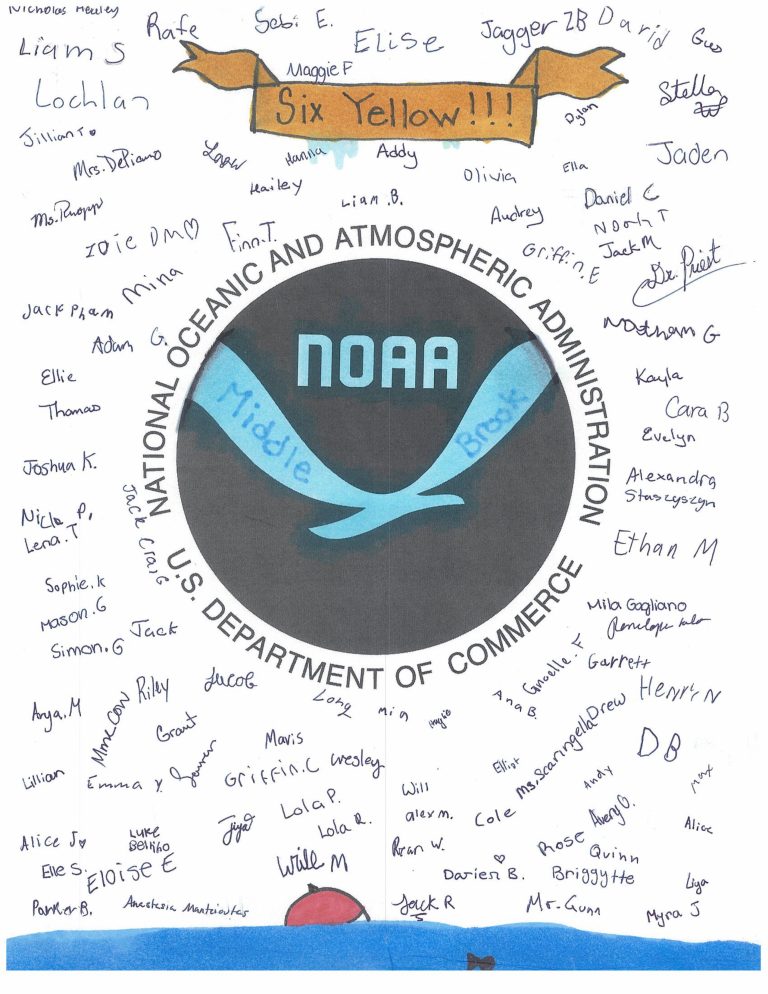 Nicholas Heeley
Rafe
Sebi E.
Elise
Jagger ZB
David
Gus
Liam S
Maggie F
Lochlan
Six Yellow!!!
Dylan
Stella
Jillian T.
Mrs. DePiano
Hanna
Addy
Olivia
Ella
Jaden
Hailey
Liam .B.
Audrey
Daniel C
Noah T
Zoie DM♡
Finn.T.
Griffin.E
Jack M
Dr. Priest
Mina
Jack Pham
Adam G.
Nathan G
NATIONAL OCEANIC AND ATMOSPHERIC ADMINISTRATION
NOAA
Middle
Brook
U.S. DEPARTMENT OF COMMERCE
Ellie
Thomas
Kayla
Cara B
Evelyn
Joshua K.
Alexandra
Staszyszyn
Jack Craig
Lena.T
Ethan M
Sophie.K
Mason.G
Simon.G
Jack
Mila Gagliano
Garrett
Gnoelle.F
Henry N
Anya.M
Mme Cow
Riley
Jacob
Long
mia
Ana B.
Drew
Grant
Mavis
Ms. Scaringella
DB
Lillian
Emma Y
Griffin.C
Wesley
Elliot
Andy
Will
Lola P.
Alex m.
Cole
Avery O.
Alice
Lola R.
Alice J♡
Luke
Ryan W.
Rose
Quinn
Elle S.
Eloise E
Will M
Darien B.
Briggytte
Liya
Parker B.
Anastasia Mantzioutas
Jack R
Mr. Gunn
Myra J